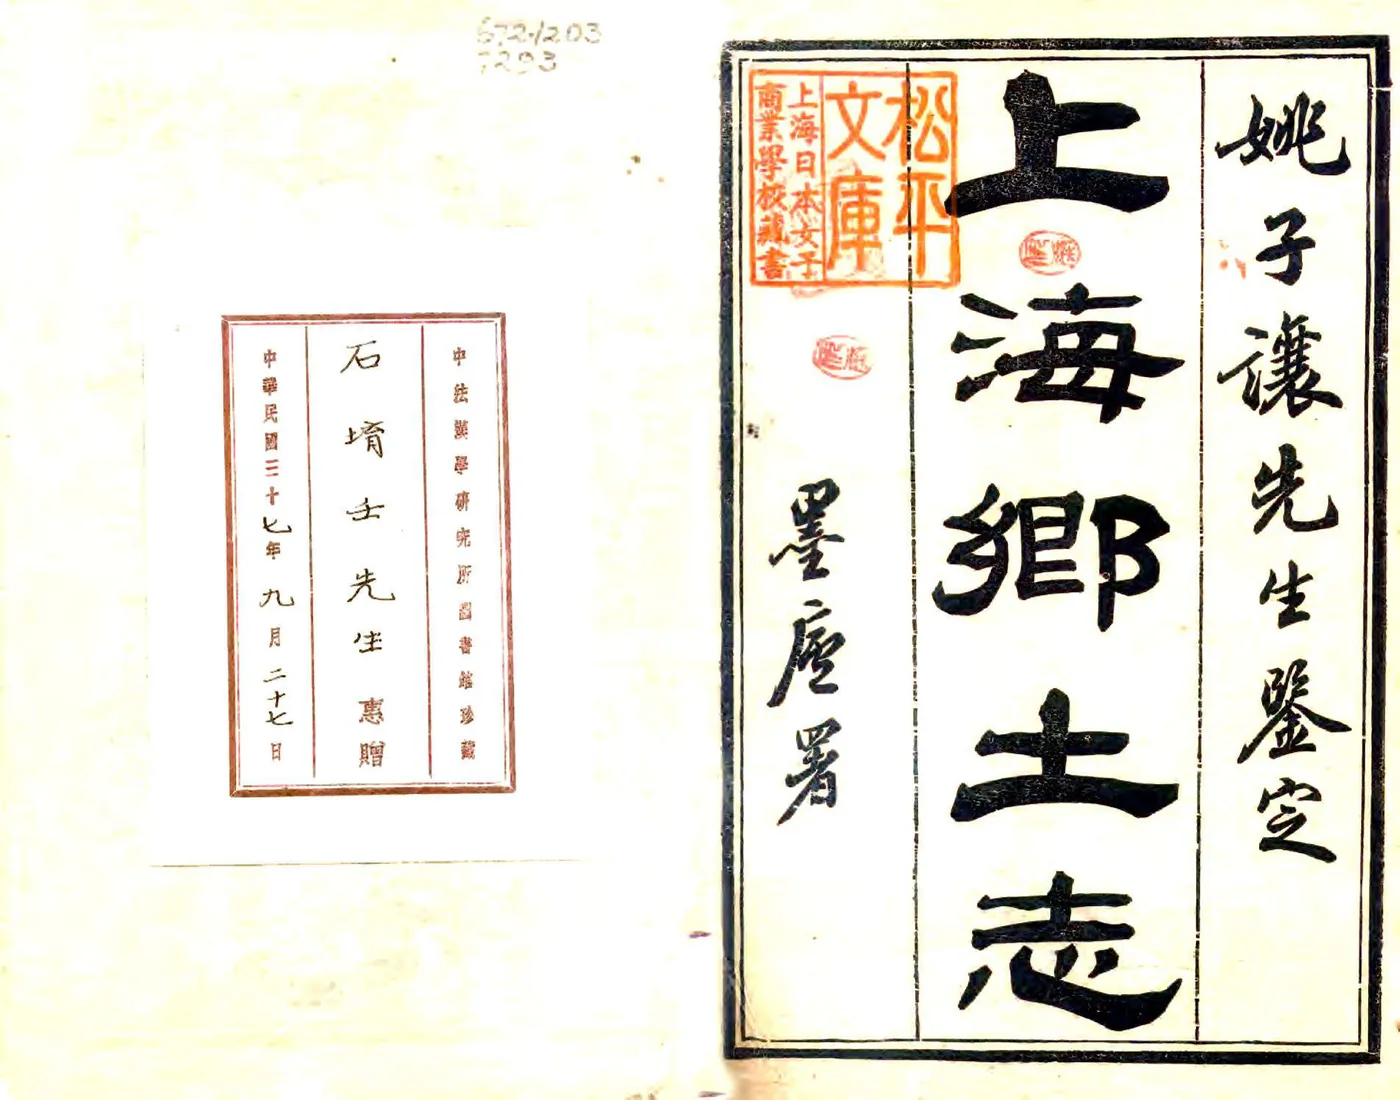 姚子讓先生鑒定
上海鄉土志
墨廬署
松平
文庫
上海日本女子
商業學校藏書
672.1203
7293
中法漢學研究所圖書館珍藏
石堉壬先生惠贈
中華民國三十七年九月二十七日